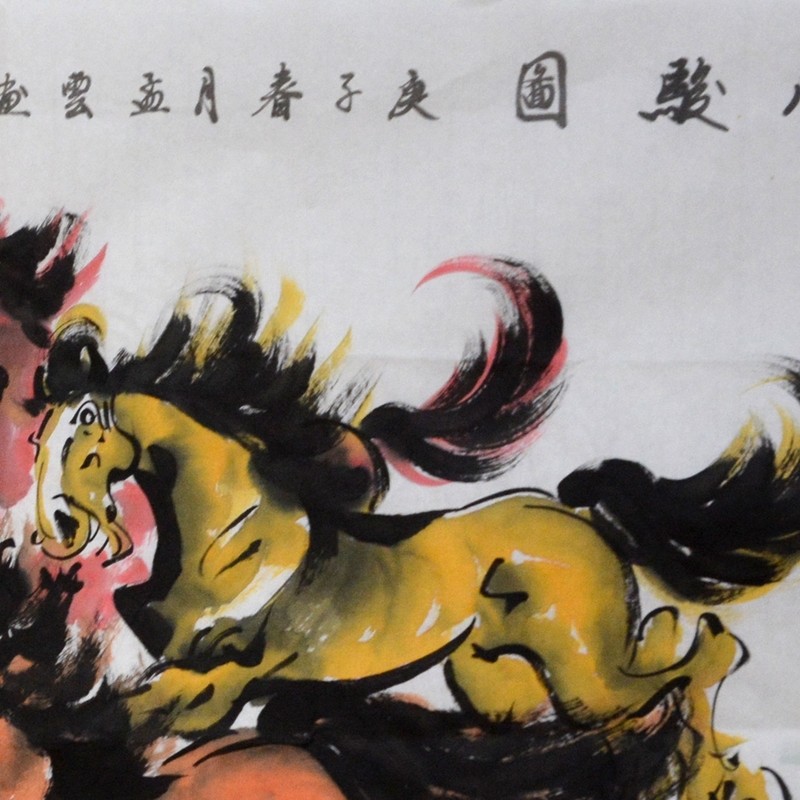 駿圖庚子春月孟雲